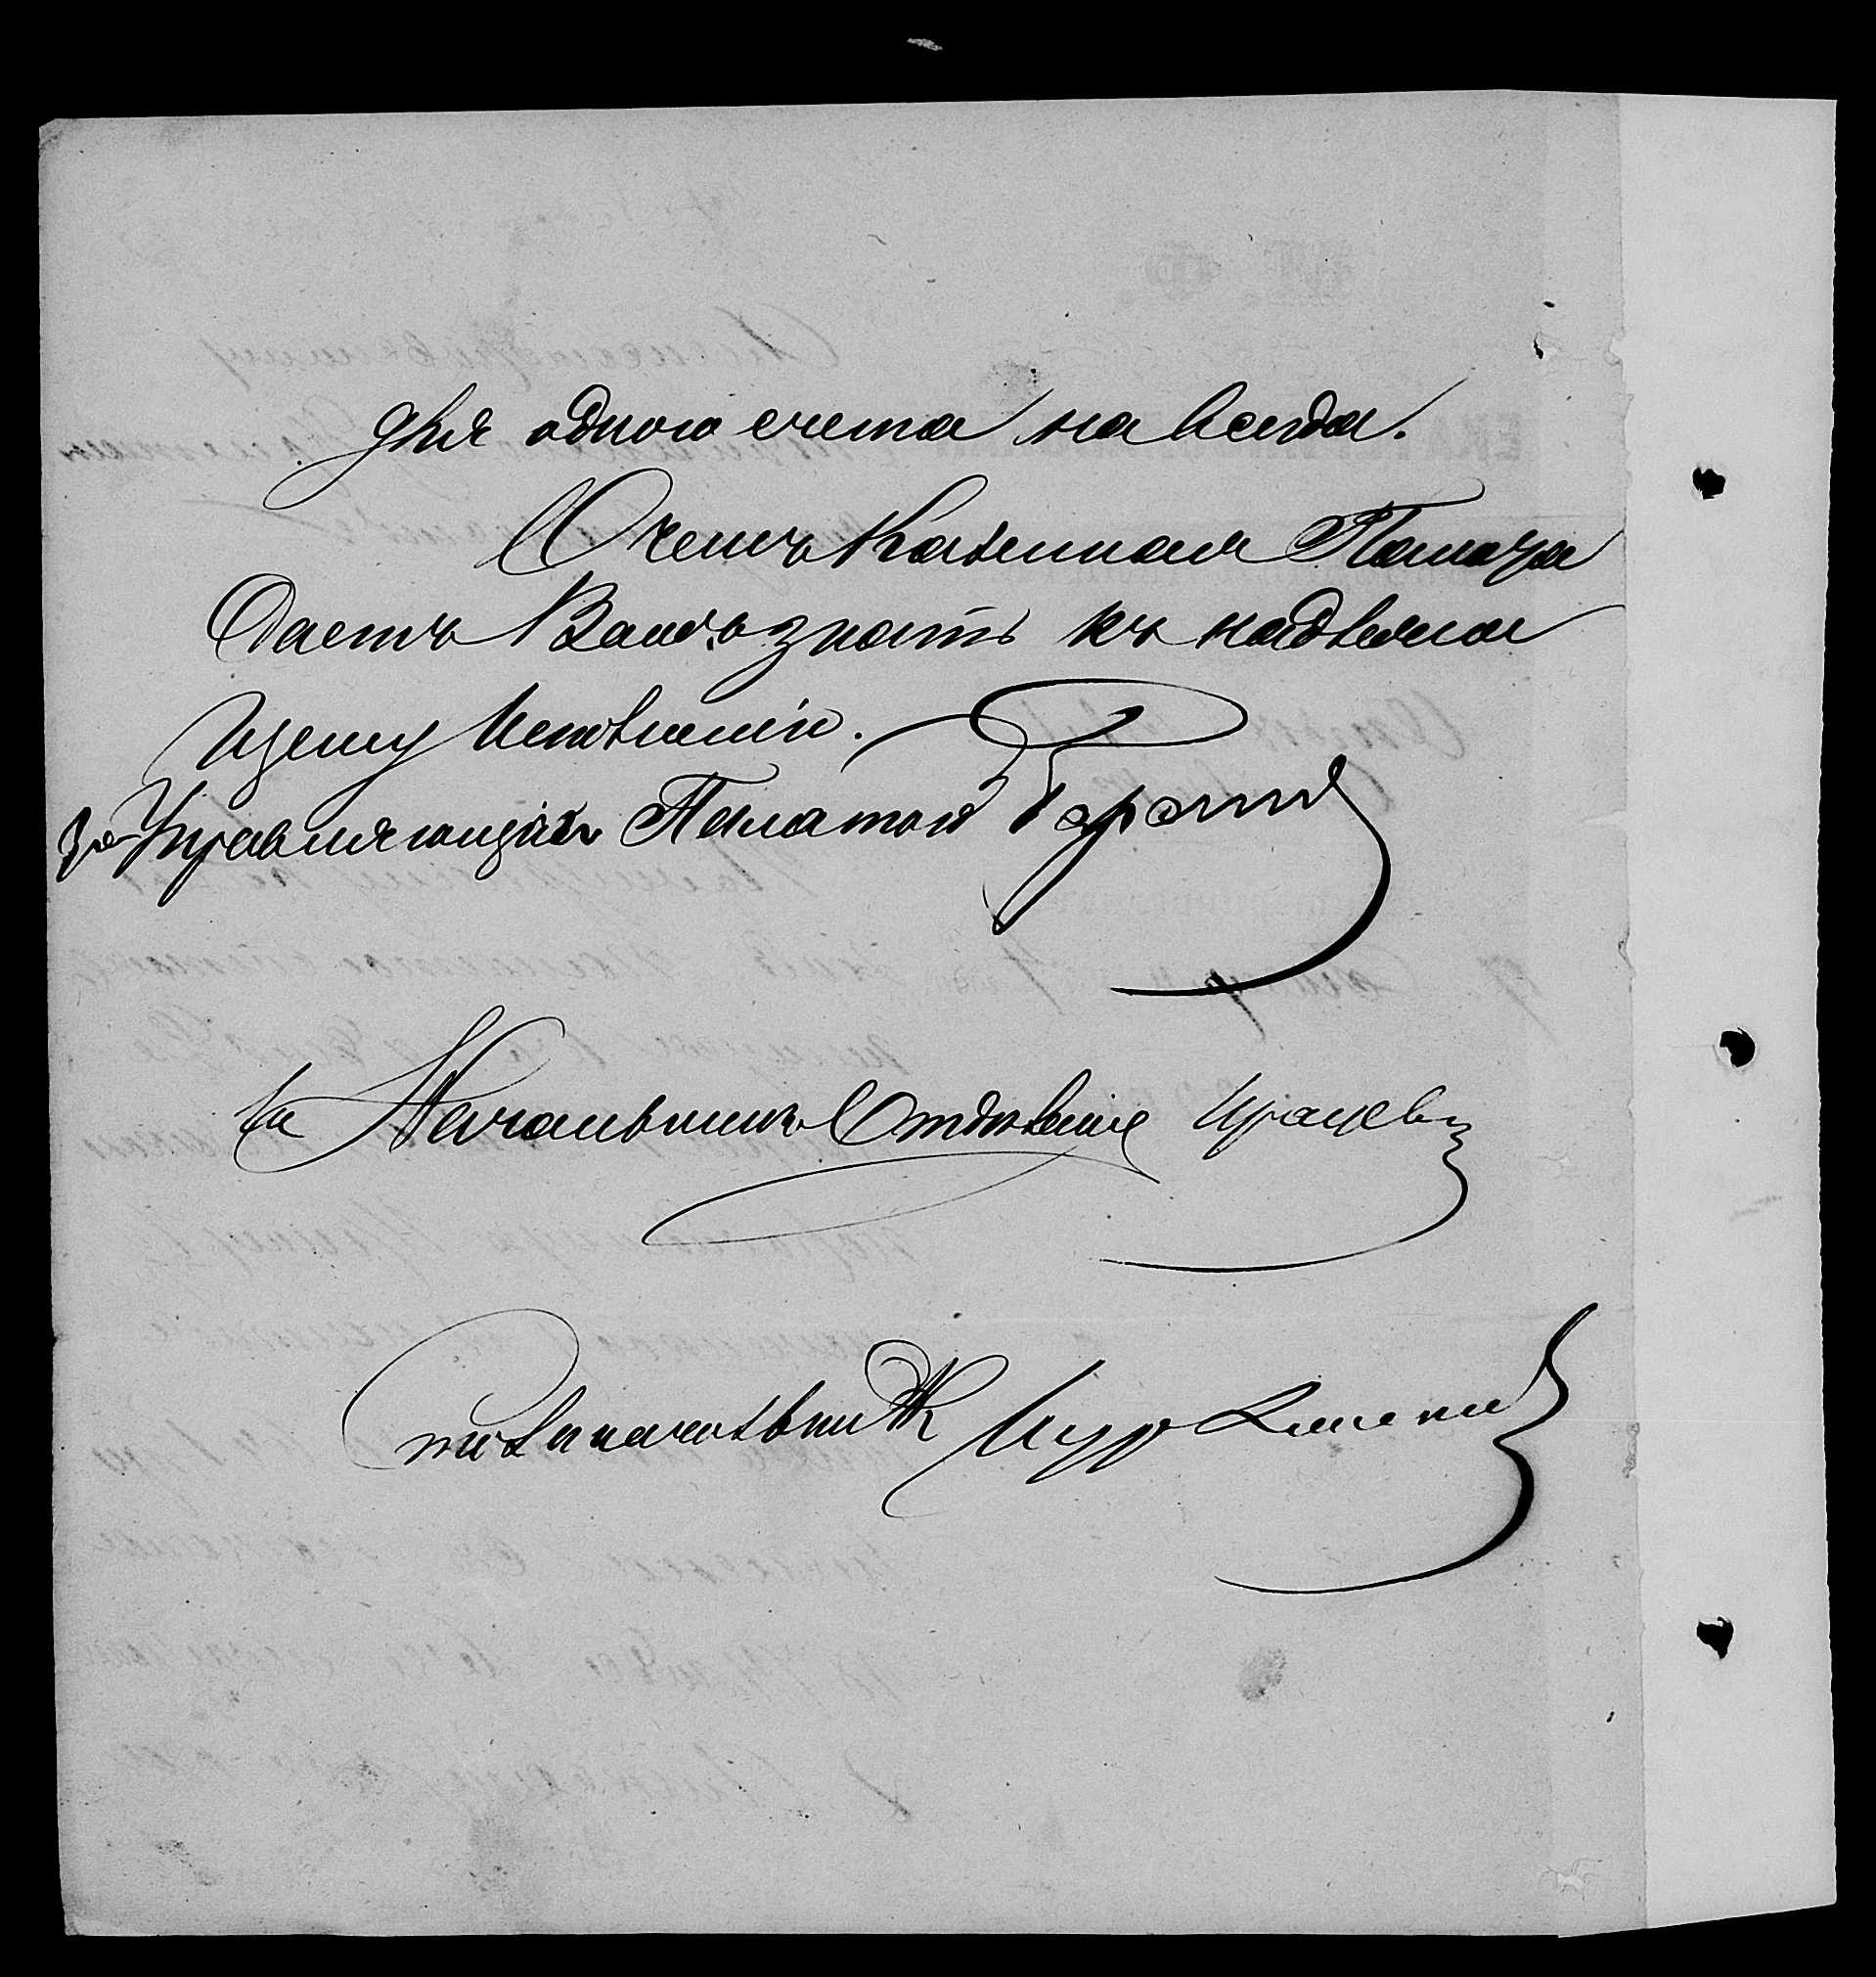 для одного счета на всегда.
О чемъ Казенная Палата
даетъ Вамъ знать къ надлежа
щему исполненію.
За Управляющаго Палатой
За Начальника Отдѣленія
Столоначальник